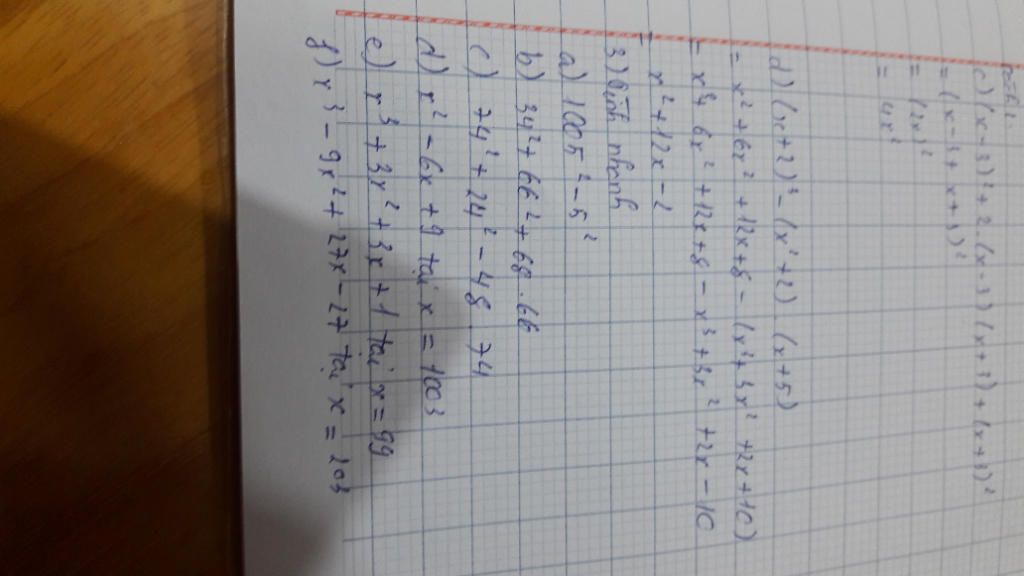 c) (x-3)² + 2.(x-3)(x+3) + (x+3)²
= (x-3 + x+3)²
= (2x)²
= 4x²
d) (x+2)³ - (x²+2).(x+5)
= x² + 6x² + 12x + 8 - (x³ + 5x² + 2x + 10)
= x³ + 6x² + 12x + 8 - x³ + 5x² + 2x - 10
= x² + 12x - 2
3) Tính nhanh
a) 1005² - 5²
b) 34² + 66² + 68.66
c) 74² + 24² - 48.74
d) x² - 6x + 9 tại x = 1003
e) x³ + 3x² + 3x + 1 tại x = 99
f) x³ - 9x² + 27x - 27 tại x = 103